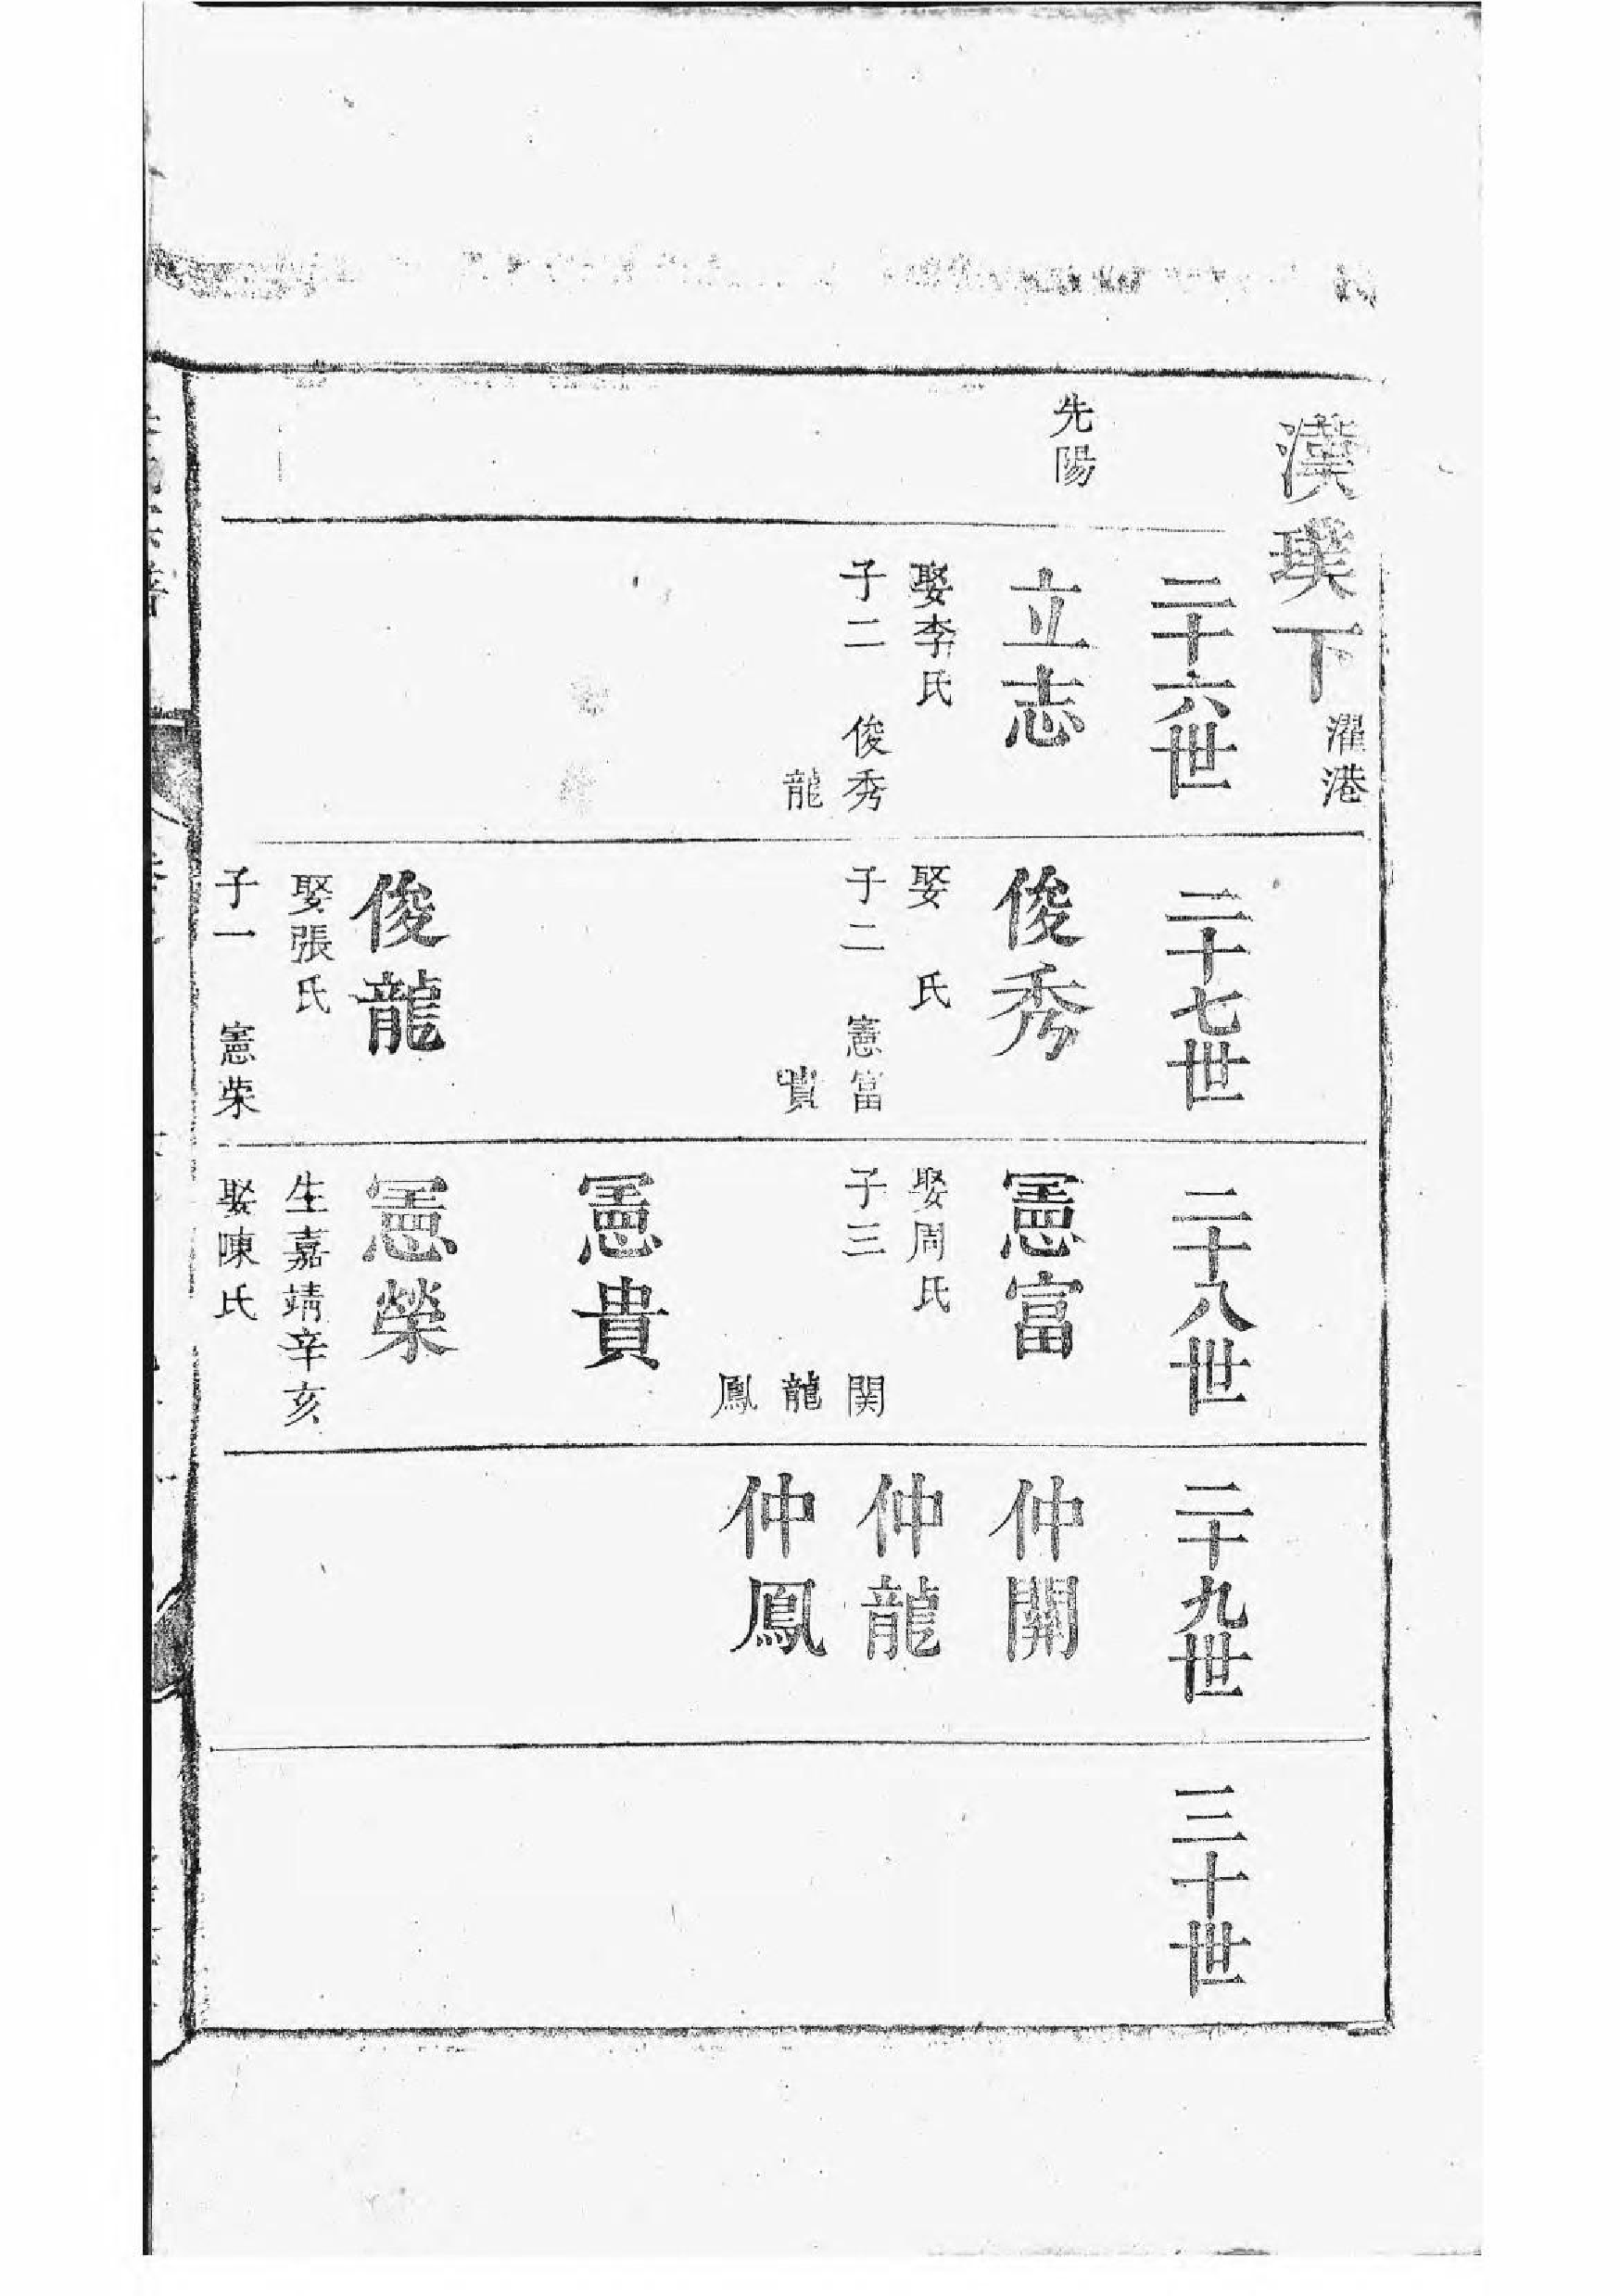 漢璞下 濯港
先陽
二十六世
立志
娶李氏
子二 俊秀
龍
二十七世
俊秀
娶 氏
子二 憲富
貴
俊龍
娶張氏
子一 憲荣
二十八世
憲富
娶周氏
子三 関
龍
鳳
憲貴
憲榮
生嘉靖辛亥
娶陳氏
二十九世
仲開
仲龍
仲鳳
三十世